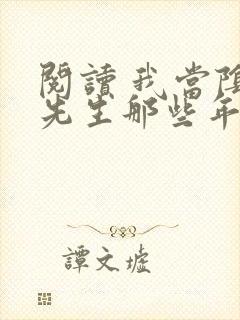 閱讀我當陰
先生那些年
譚文墟